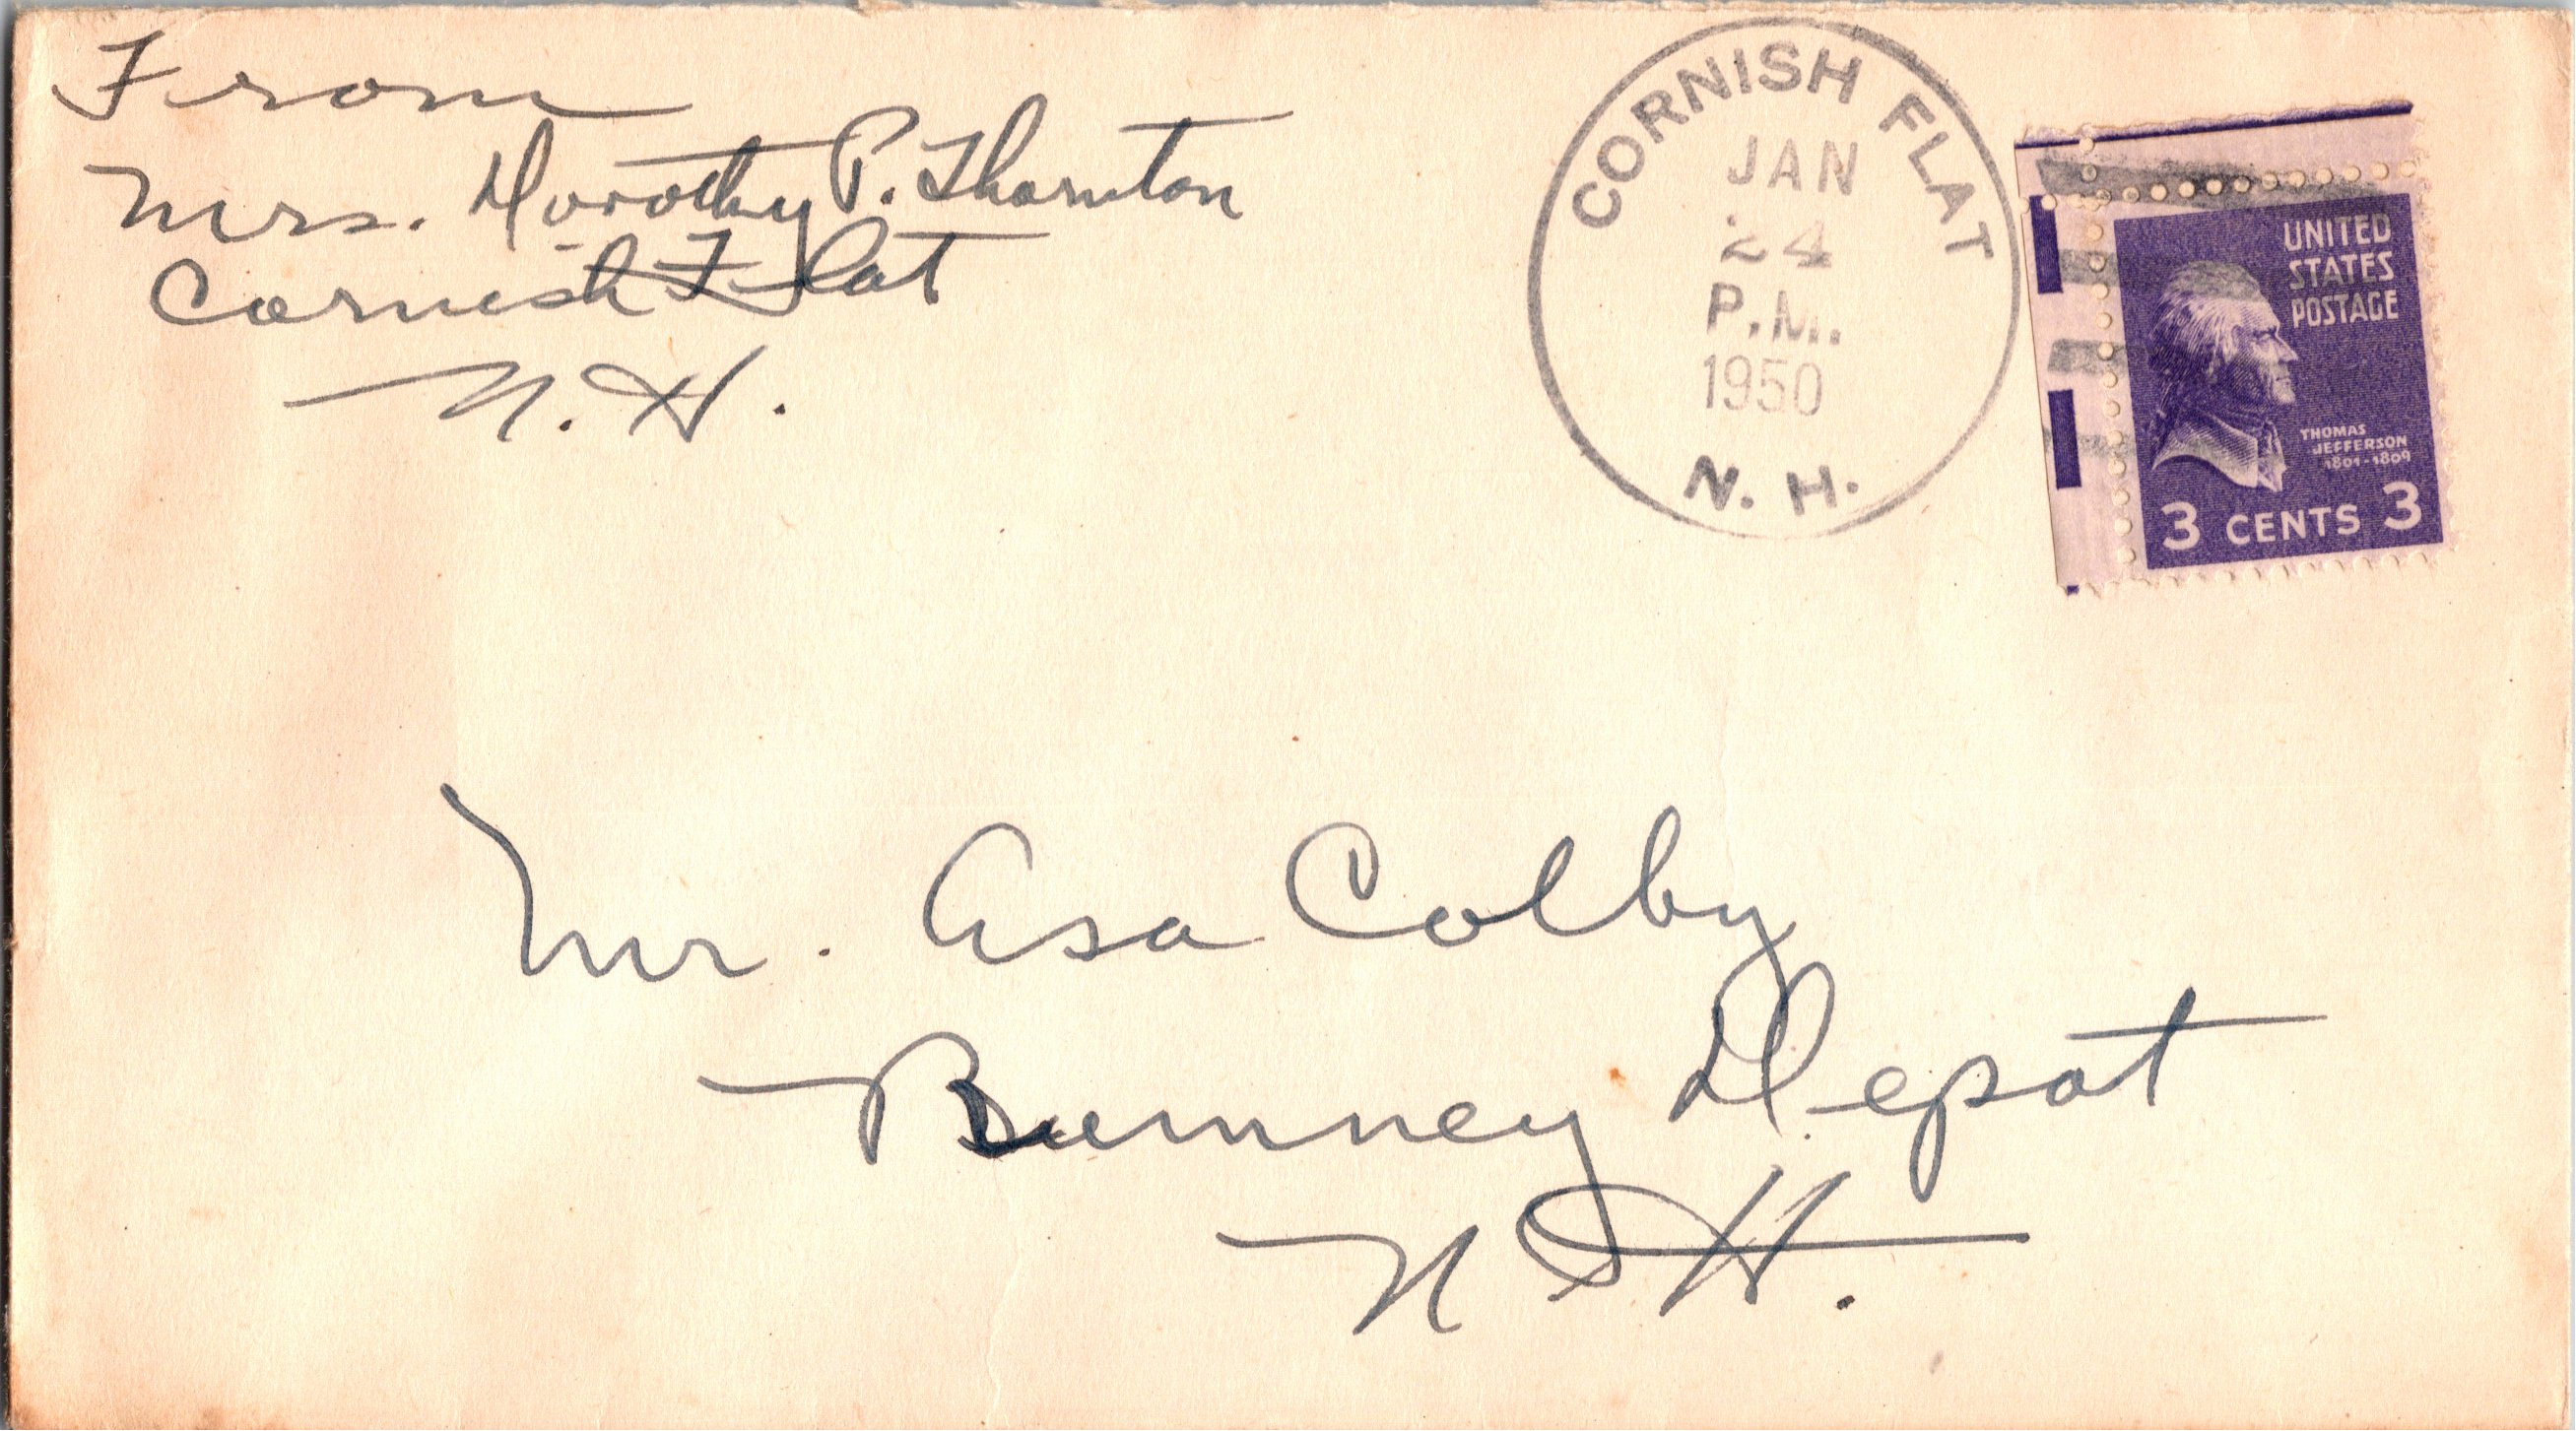 From
Mrs. Dorothy P. Thornton
Cornish Flat
N. H.
CORNISH FLAT
JAN
24
P.M.
1950
N. H.
UNITED
STATES
POSTAGE
THOMAS
JEFFERSON
1801-1809
3 CENTS 3
Mr. Asa Colby
Rumney Depot
N H.